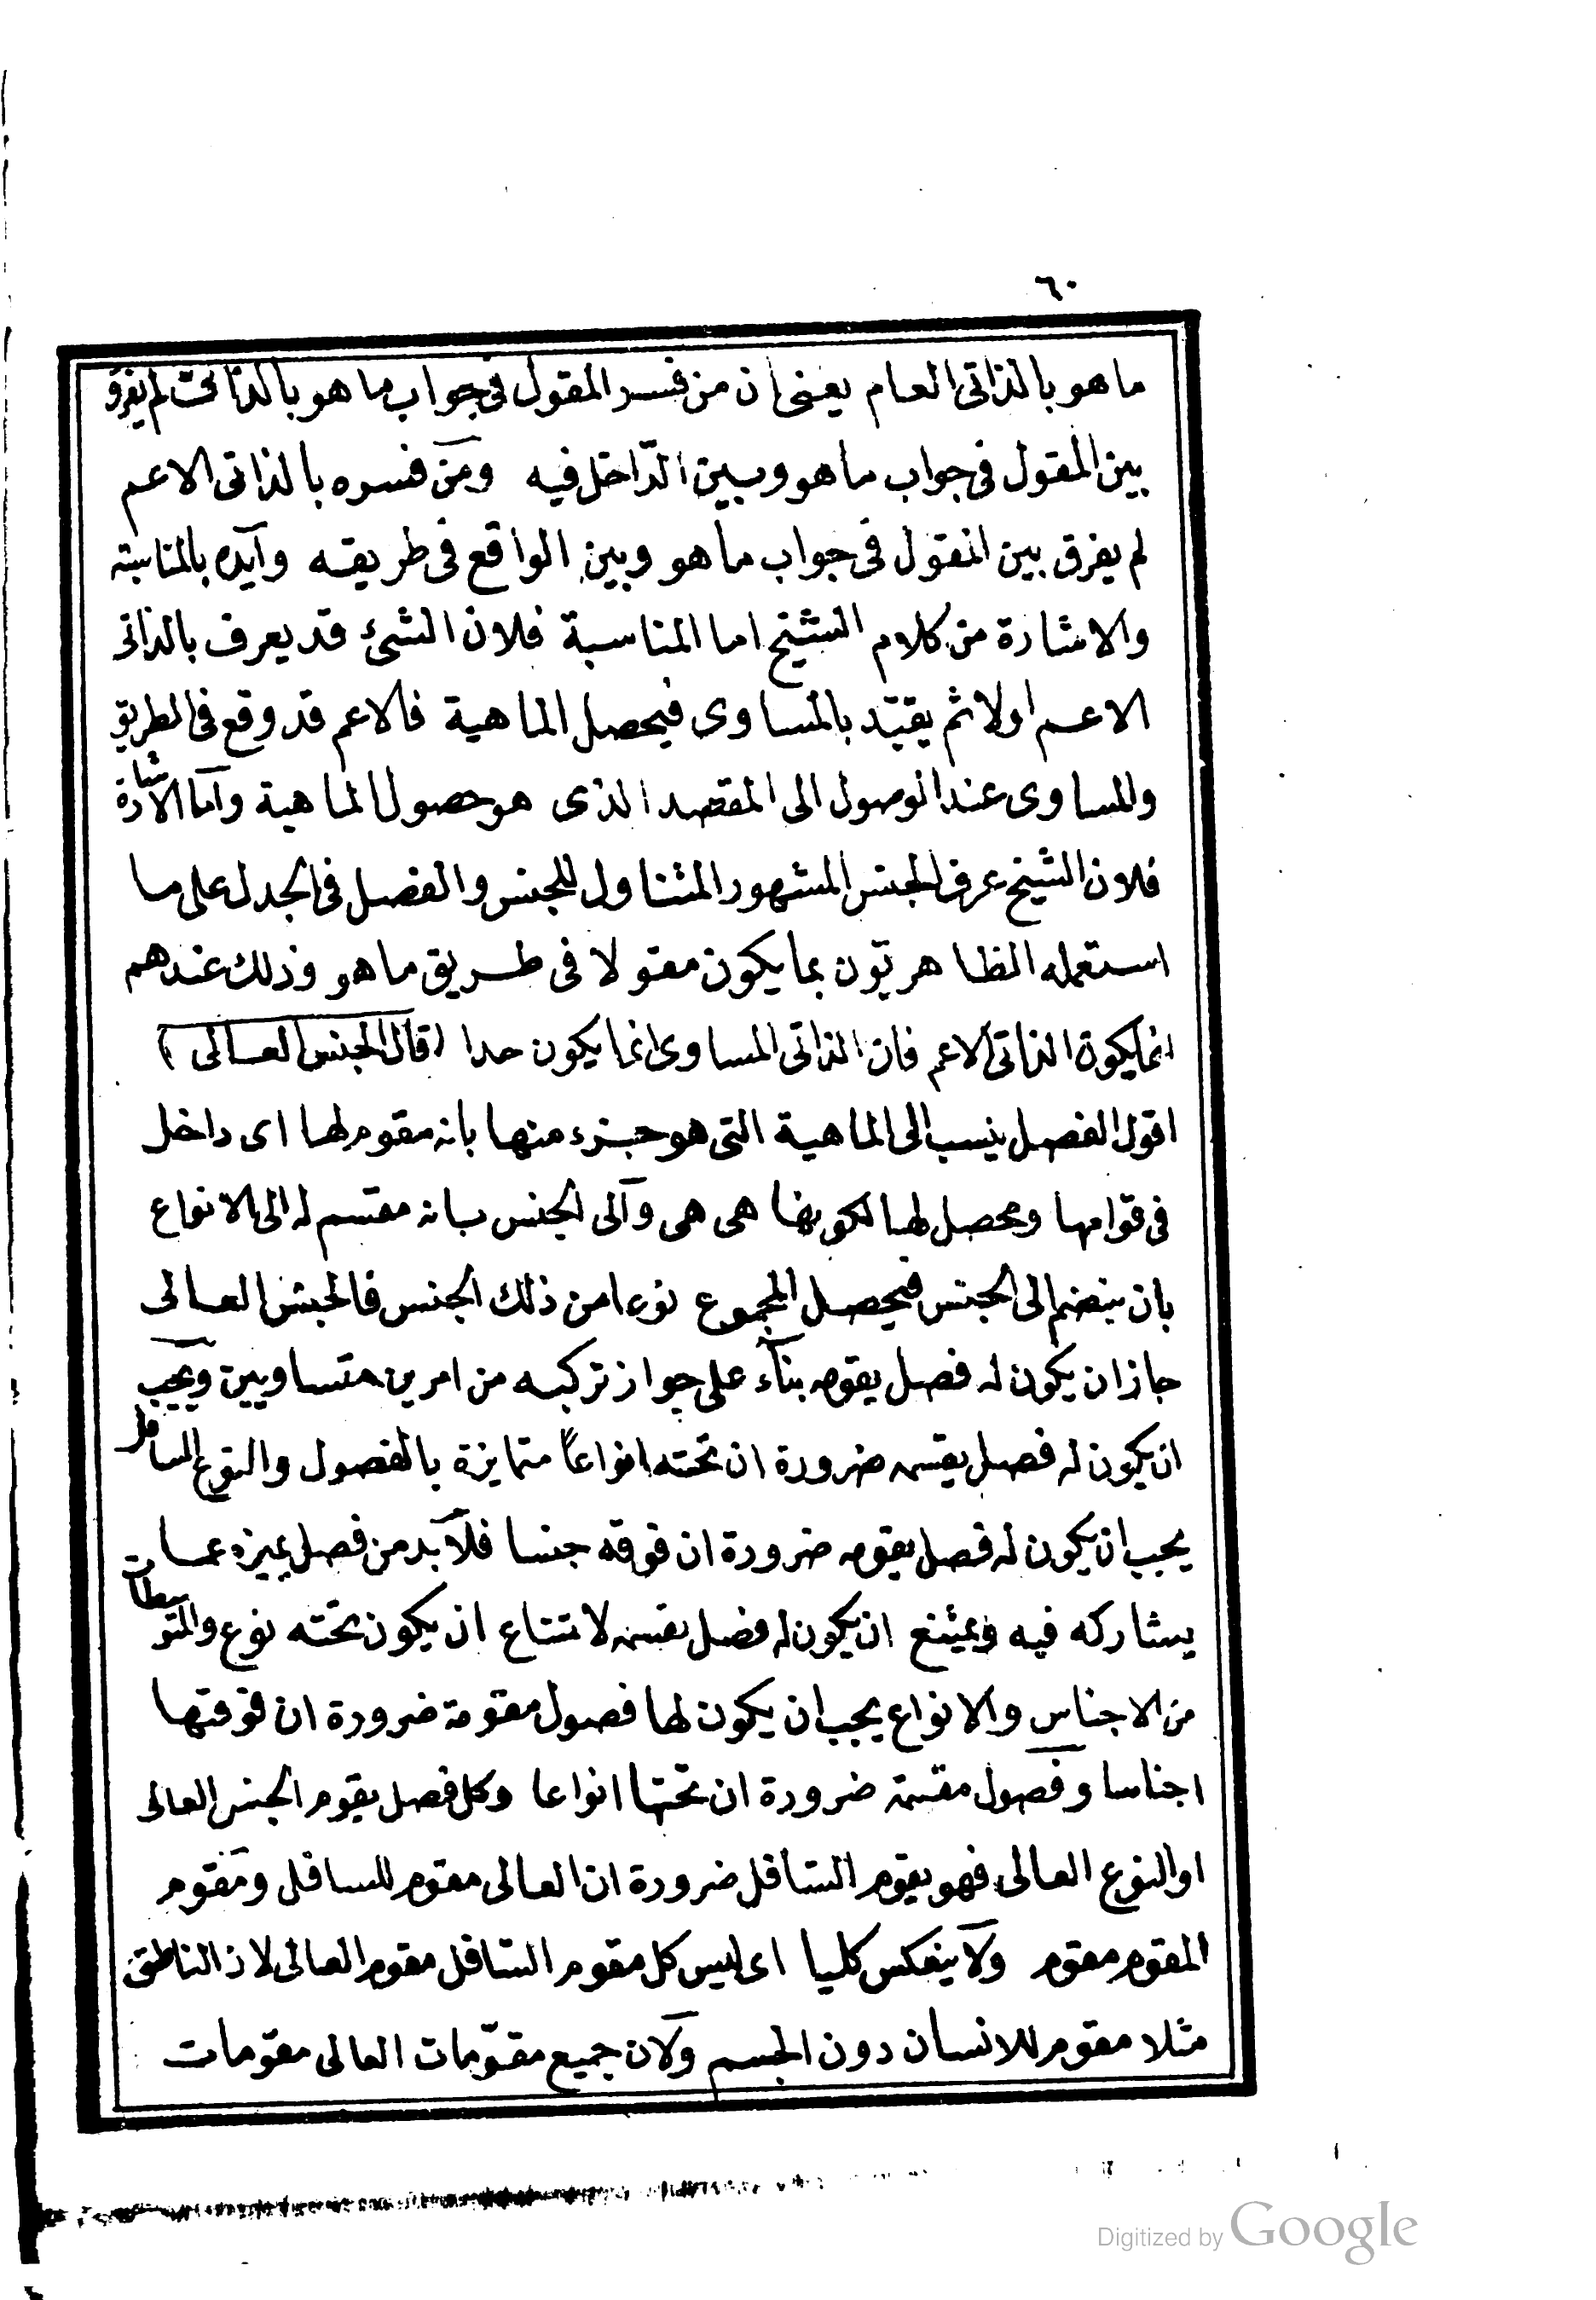 ٦٠
ما هو بالذاتى العام يعنى ان من فسر المقول فى جواب ما هو بالذاتى لم يفرق
بين المقول فى جواب ما هو وبين الدّاخل فيه ومن فسره بالذاتى الاعم
لم يفرق بين المقول فى جواب ما هو وبين الواقع فى طريقه وايده بالمناسبة
والاشارة من كلام الشيخ اما المناسبة فلان الشئ قد يعرف بالذاتى
الاعم اولا ثم يقيّد بالمساوى فيحصل الماهية فالاعم قد وقع فى الطريق
والمساوى عند الوصول الى المقصد الذى هو حصول الماهية واما الاشارة
فلان الشيخ عرف الجنس المشهور المتناول للجنس والفصل فى الجدل على ما
استعمله الظاهريّون بما يكون مقولا فى طريق ما هو وذلك عندهم
انما يكون الذاتى الاعم فان الذاتى المساوى انما يكون حدا (قال الجنس العالى)
اقول الفصل ينسب الى الماهية التى هو جزء منها بانه مقوم لها اى داخل
فى قوامها ومحصل لها لكونها هى هى والى الجنس بانه مقسم له الى الانواع
بان ينضم الى الجنس فيحصل المجموع نوعا من ذلك الجنس فالجنس العالى
جاز ان يكون له فصل يقومه بناء على جواز تركبه من امرين متساويين ويجب
ان يكون له فصل يقسمه ضرورة ان تحته انواعاً متمايزة بالفصول والنوع السافل
يجب ان يكون له فصل يقومه ضرورة ان فوقه جنسا فلا بد من فصل يميزه عما
يشاركه فيه ويمتنع ان يكون له فصل يقسمه لامتناع ان يكون تحته نوع والمتوسطات
من الاجناس والانواع يجب ان يكون لها فصول مقومة ضرورة ان فوقتها
اجناسا وفصول مقسمة ضرورة ان تحتها انواعا وكل فصل يقوم الجنس العالى
او النوع العالى فهو يقوم السافل ضرورة ان العالى مقوم للسافل ومقوم
المقوم مقوم ولا ينعكس كليا اى ليس كل مقوم السافل مقوم العالى لان الناطق
مثلا مقوم للانسان دون الجسم ولان جميع مقوّمات العالى مقومات
Digitized by Google